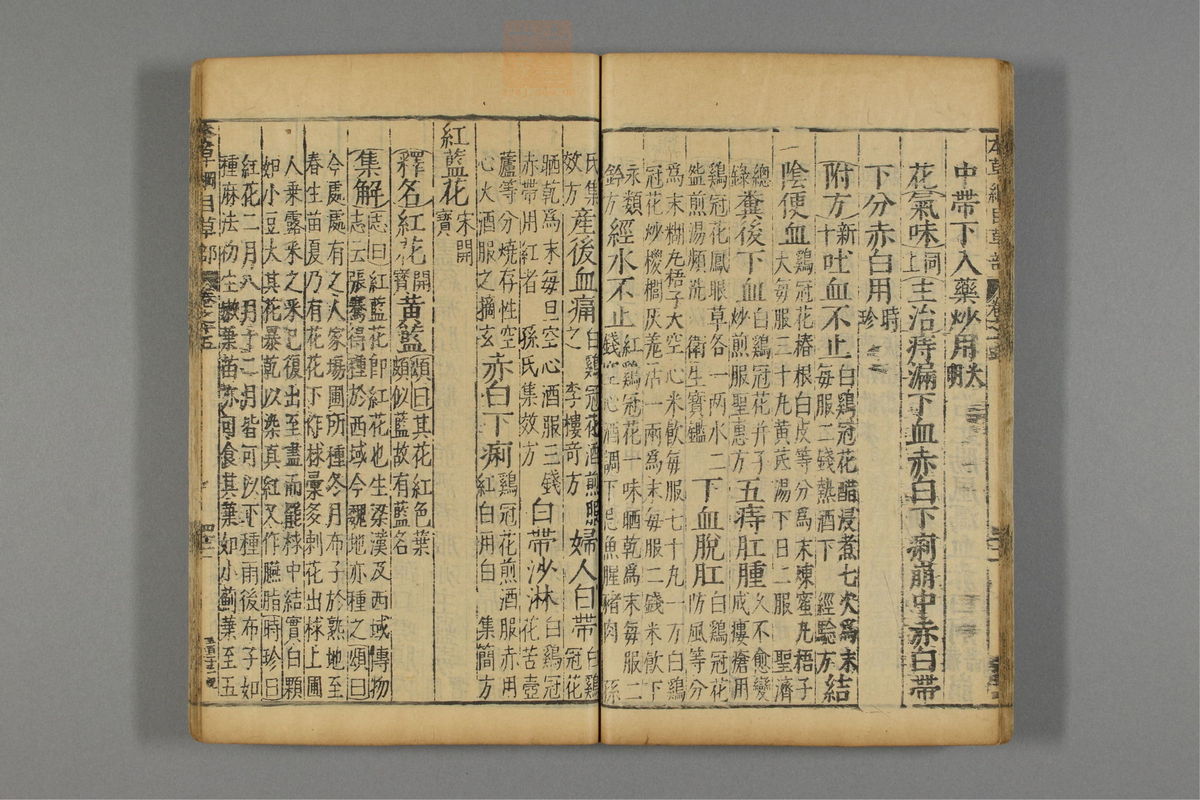 本草綱目草部
中帶下入藥炒用大明
花氣味同上主治痔漏下血赤白下痢崩中赤白帶
下分赤白用時珍
附方新十吐血不止白鷄冠花醋浸煮七次爲末每服二錢熱酒下 經驗方結
陰便血鷄冠花椿根白皮等分爲末煉蜜丸梧子大每服三十丸黃芪湯下日二服 聖濟
總錄糞後下血白鷄冠花并子炒煎服聖惠方五痔肛腫久不愈變成瘻瘡用
鷄冠花鳳眼草各一兩水二盌煎湯頻洗衛生寶鑑下血脫肛白鷄冠花防風等分
爲末糊丸梧子大空心米飲每服七十丸一方白鷄冠花炒椶櫚灰羗活一兩爲末每服二錢米飲下
永類鈐方經水不止紅鷄冠花一味晒乾爲末每服二錢空心酒調下忌魚腥猪肉 孫
氏集效方產後血痛白鷄冠花酒煎服之 李樓奇方婦人白帶白鷄冠花
晒乾爲末每旦空心酒服三錢赤帶用紅者 孫氏集效方白帶沙淋白鷄冠花苦壺
蘆等分燒存性空心火酒服之摘玄赤白下痢鷄冠花煎酒服赤用紅白用白 集簡方
紅藍花宋開寶
釋名紅花開寶黃藍頌曰其花紅色葉頗似藍故有藍名
集解志曰紅藍花即紅花也生梁漢及西域博物志云張騫得種於西域今魏地亦種之頌曰
今處處有之人家場圃所種冬月布子於熟地至春生苗夏乃有花花下作梂彙多刺花出梂上圃
人乗露采之采已復出至盡而罷梂中結實白顆如小豆大其花暴乾以染真紅又作臙脂時珍曰
紅花二月八月十二月皆可以下種雨後布子如種麻法初生嫩葉苗亦可食其葉如小薊葉至五
本草綱目草部 卷之十五